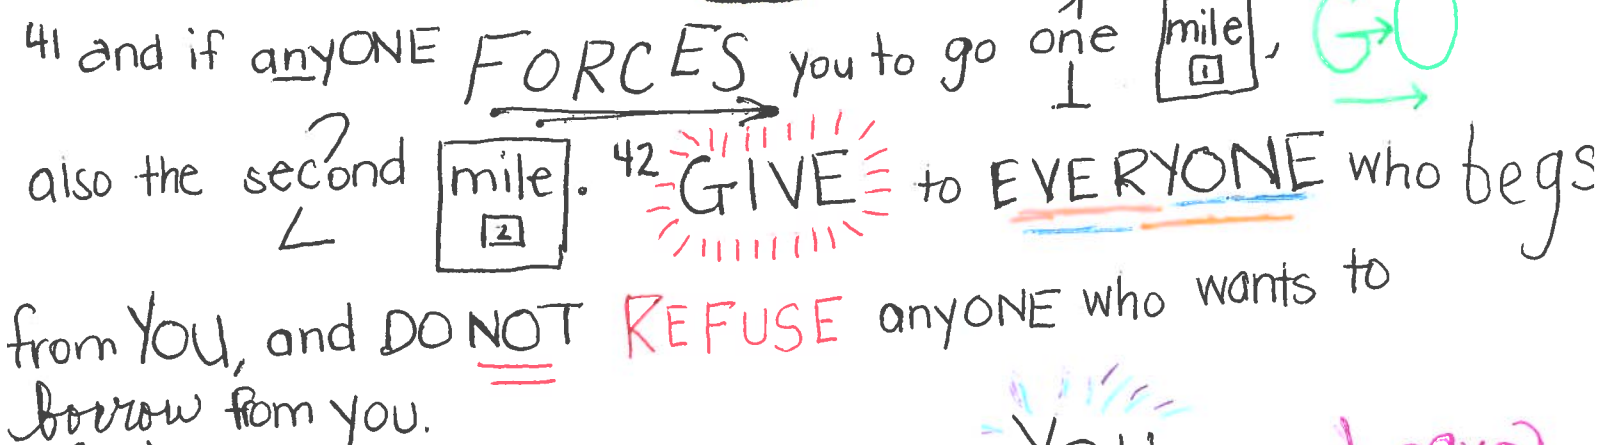 41 and if anyONE FORCES you to go one mile 1, GO
also the second mile 2. 42 GIVE to EVERYONE who begs
from YOU, and DO NOT REFUSE anyONE who wants to
borrow from you.
You